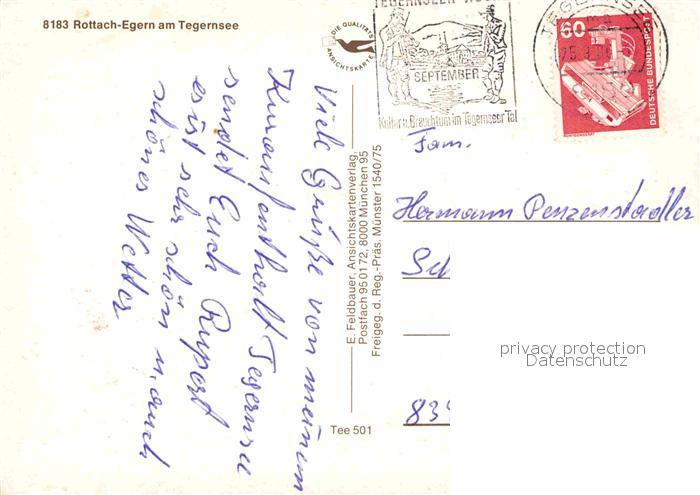 8183 Rottach-Egern am Tegernsee
DIE QUALITÄTS
ANSICHTSKARTE
SEPTEMBER
Kultur u. Brauchtum im Tegernseer Tal
60
DEUTSCHE BUNDESPOST
Viele Grüße von meinem
Kuraufenthalt Tegernsee
sendet Euch Rupert
es ist sehr schön u. auch
schönes Wetter
E. Feldbauer, Ansichtskartenverlag,
Postfach 95 01 72, 8000 München 95
Freigeg. d. Reg.-Präs. Münster 1540/75
Tee 501
Fam.
Hermann Penzenstadler
privacy protection
Datenschutz